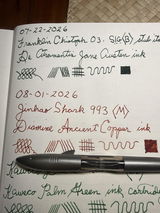 07-22-2026
Franklin Christoph 03. SIG(B) stub
De Atramentis Jane Austen ink
08-01-2026
Jinhao Shark 993 (M)
Diamine Ancient Copper ink
Kaweco Palm Green ink cartridge